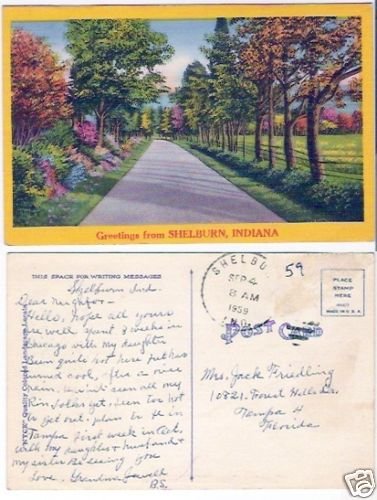 Greetings from SHELBURN, INDIANA
THIS SPACE FOR WRITING MESSAGES
Shelburn Ind.
Dear Neighbor-
Hello, hope all yours
are well. Spent 3 weeks in
Chicago with my daughter
Been quite hot here just has
turned cool, after a nice
rain. I in't seen all my
kin folks yet, been too hot
to get out. plan to be in
Tampa first week in Oct.
with my daughter & husband &
my sister Be seeing you
Love. Grandma
B.S.
SHELBU
SEP 4
8 AM
1959
IND.
59
PLACE
STAMP
HERE
MADE IN U.S.A.
POST CARD
Mrs. Jack Friedling
10821. Forest Hills Dr.
Tampa 4
Florida